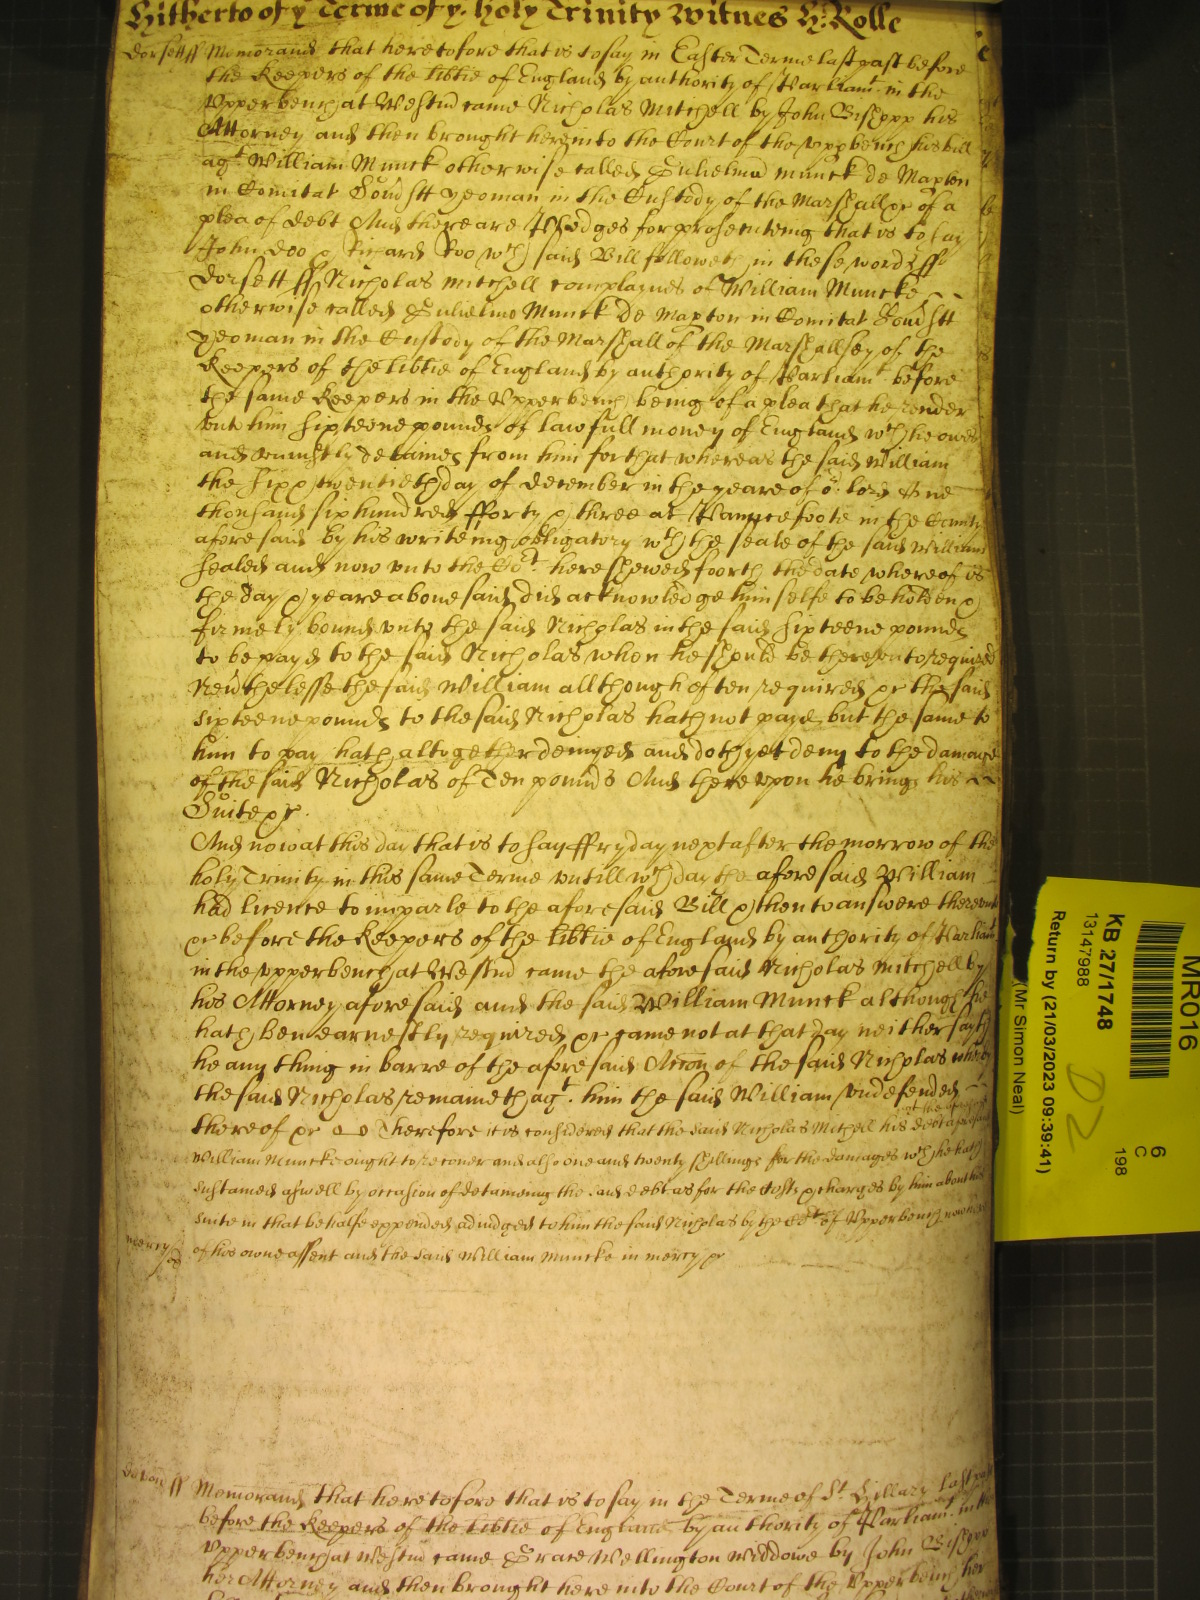 Hitherto of y Terme of y. holy Trinity Witnes H: Rolle
Dorsett ss Memorand that heretofore that is to say in Easter Terme last past before
the Keepers of the libtie of England by authority of Parliamt. in the
Vpperbench at Westmr came Nicholas Mitchell by John Bishopp his
Attorney and then brought here into the Court of the vppbench his bill
agt. William Munck otherwise called Gulielmu munck de Mapton
in Comitat Soudstt yeoman in the Custody of the Marshall &c of a
plea of debt And there are Pledges for prosecuteing that is to say
John Doo & Richard Roo wch said Bill followeth in these words ss
Dorsett ss Nicholas mitchell complaynes of William Muncke
otherwise called Gulielmo Munck de Mapton in Comitat Soudstt
yeoman in the Custody of the Marshall of the Marshallsey of the
Keepers of the libtie of England by authority of Parliamt before
the same Keepers in the Vpper bench being of a plea that he render
vnto him sixteene pounds of lawfull money of England wch he owes
and vniustly detaines from him for that whereas the said William
the sixx twentieth day of december in the yeare of or. lord One
thousand six hundred fforty & three at Pauncefoote in the County
aforesaid by his writeing obligatory wth the seale of the said William
sealed and now vnto the Cort. here shewed foorth the date whereof is
the day & yeare aboue said did acknowledge him selfe to be holden &
firmely bound vnto the said Nicholas in the said sixteene pounds
to be payd to the said Nicholas when he should be therevnto required
Neuthelesse the said William allthough often required &c the said
sixteene pounds to the said Nicholas hath not payd but the same to
him to pay hath altogether denyed and doth yet deny to the damage
of the said Nicholas of Ten pounds And there vpon he brings his
Suite &c.
And now at this day that is to say ffryday next after the morrow of the
holy Trinity in this same Terme vntill wch day the aforesaid William
had licence to imparle to the aforesaid Bill & then to answere therevnto
&c before the Keepers of the libtie of England by authority of Parliamt
in the vpper bench at Westmr came the aforesaid Nicholas Mitchell by
his Attorney aforesaid and the said William Munck although he
hath ben earnestly required &c came not at that day neither sayth
he any thing in barre of the aforesaid Accon of the said Nicholas whereby
the said Nicholas remaineth agt. him the said William vndefended
thereof &c Therefore it is considered that the said Nicholas Mitchell his debt aforesaid agt the aforesaid
William Muncke ought to recouer and also one and twenty shillings for the damages wch he hath
sustained aswell by occasion of detaineing the said debt as for the Costs & charges by him about his
suite in that behalfe expended adiudged to him the said Nicholas by the Cort of Vpper bench now here
mercy of his owne assent and the said William Muncke in mercy &c
Deuon ss Memorand that heretofore that is to say in the Terme of St. Hillary last past
before the Keepers of the libtie of England by authority of Parliamt. in the
Vpper bench at Westmr came Grace Wellington widdowe by John Bishopp
her Attorney and then brought here into the Court of the Vpper bench her
MR016
6
C
198
KB 27/1748
13147988
D2
Return by (21/03/2023 09:39:41)
(Mr Simon Neal)